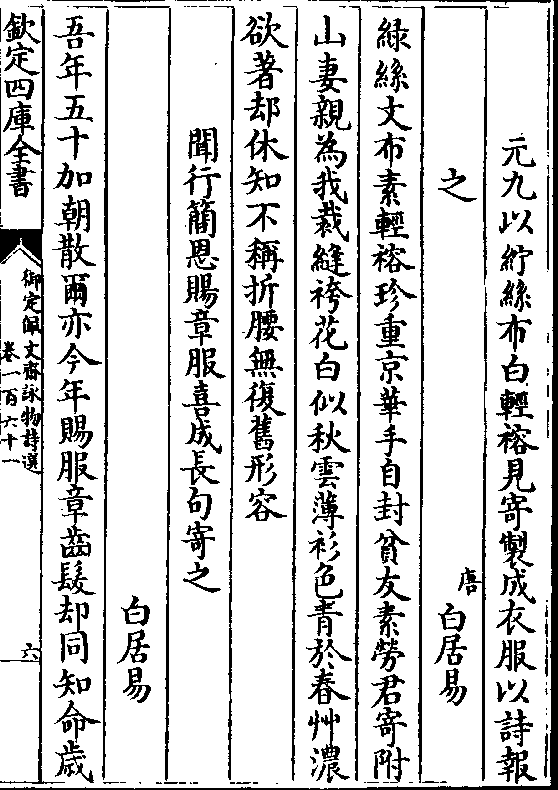 元九以紵絲布白輕褣見寄製成衣服以詩報
之　唐　白居易
緑絲文布素輕褣珍重京華手自封貧友素勞君寄附
山妻親為我裁縫袴花白似秋雲薄衫色青於春艸濃
欲著却休知不稱折腰無復舊形容
聞行簡恩賜章服喜成長句寄之
白居易
吾年五十加朝散爾亦今年賜服章齒髮却同知命歳
欽定四庫全書
御定佩文齋詠物詩選
卷一百六十一
六